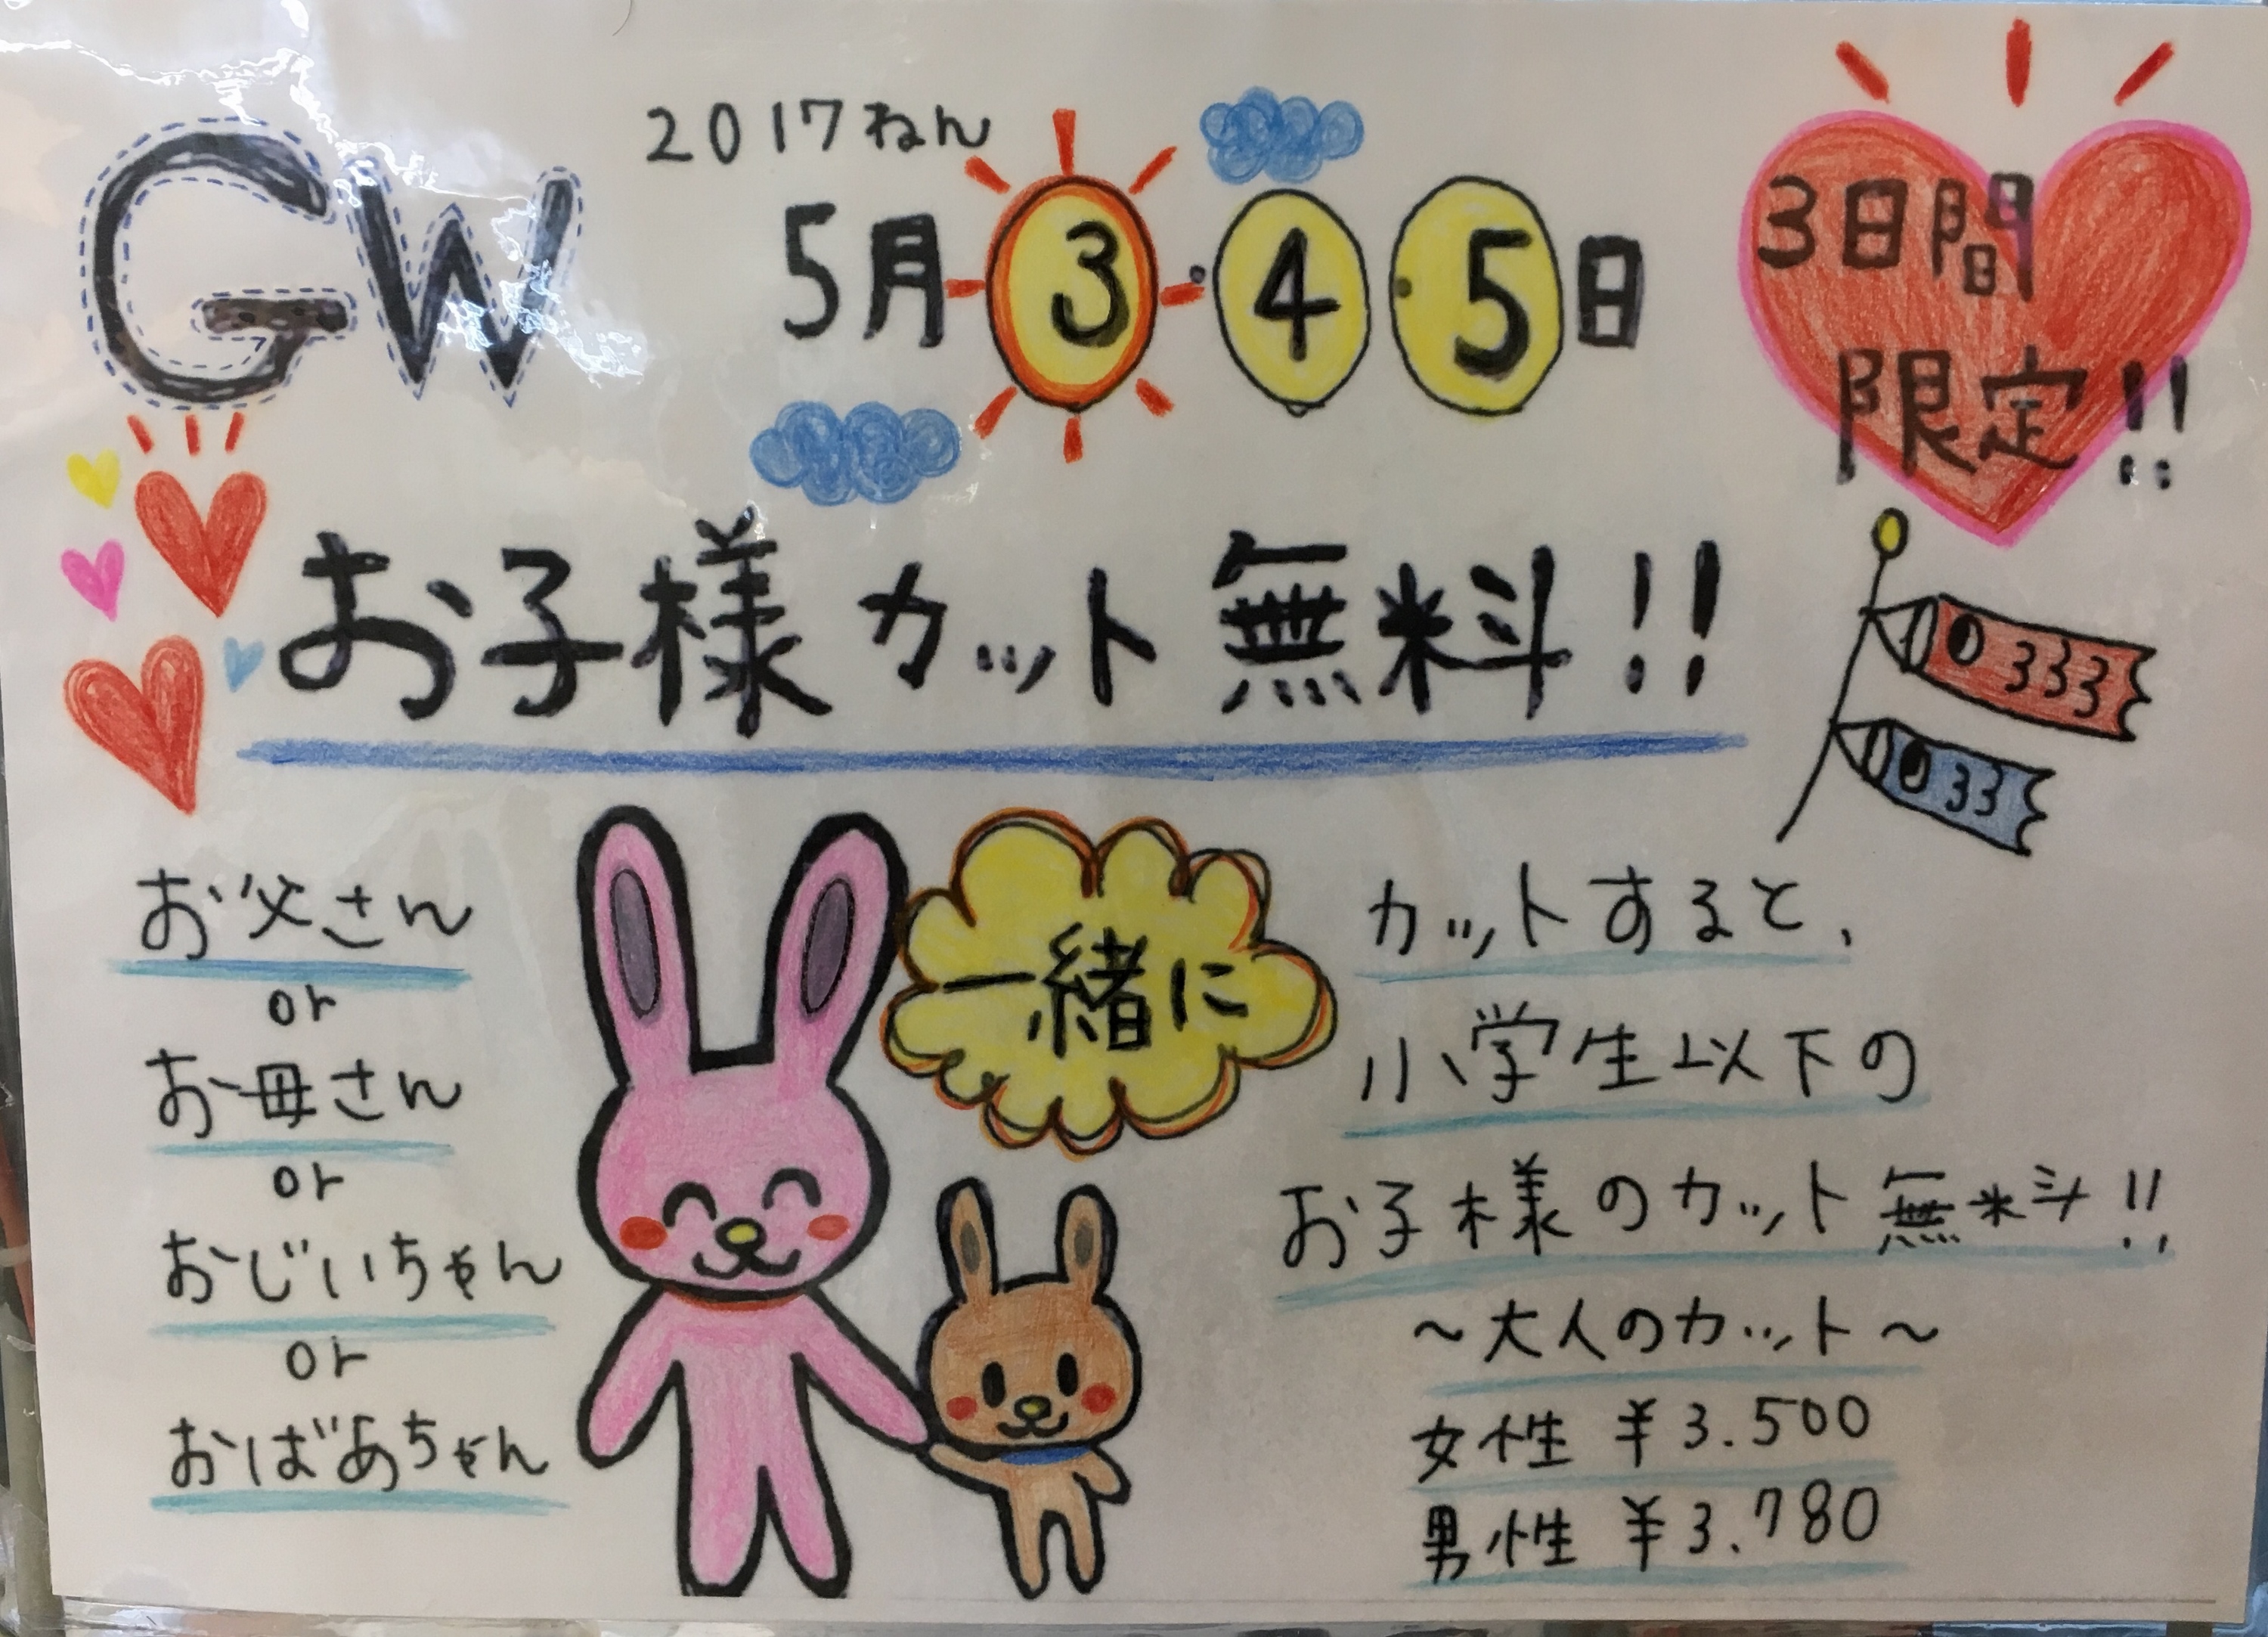 GW
2017ねん
5月3・4・5日
3日間
限定!!
お子様カット無料!!
お父さん
or
お母さん
or
おじいちゃん
or
おばあちゃん
一緒に
カットすると、
小学生以下の
お子様のカット無料!!
～大人のカット～
女性 ¥3.500
男性 ¥3.780